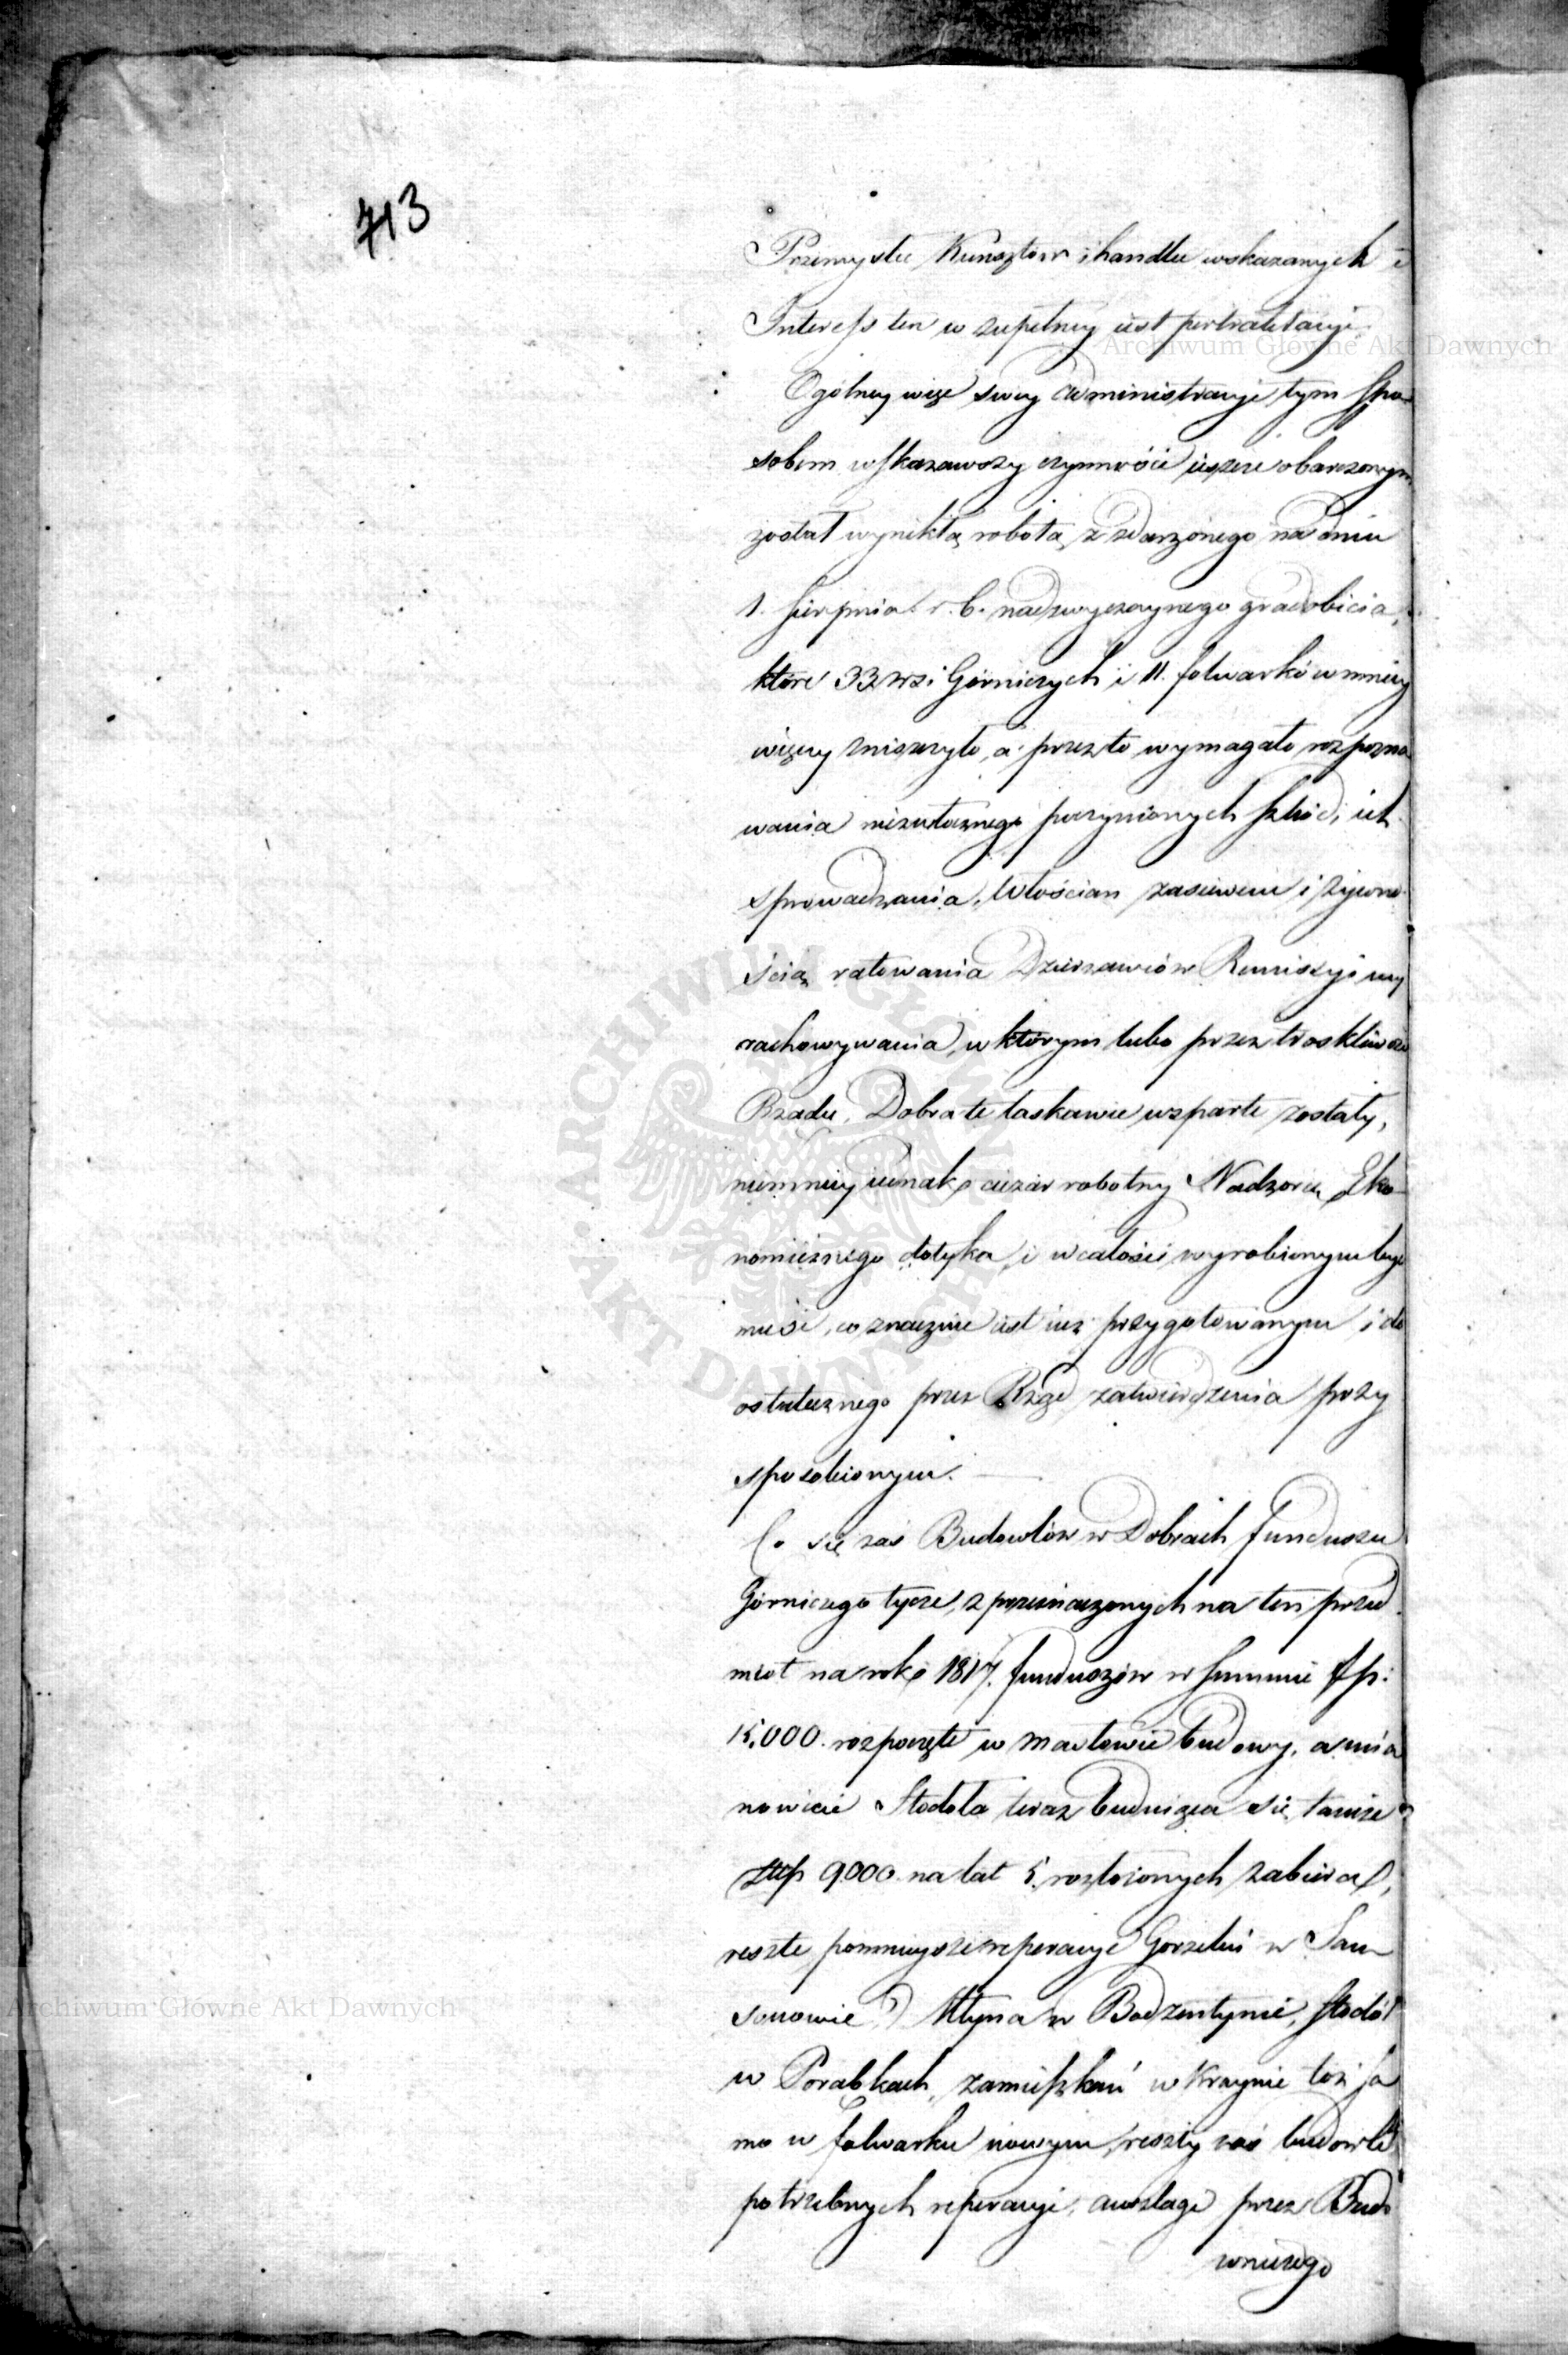 713
Przemysłu Kunsztów i handlu wskazanych i
Interess ten w zupełney iest pertraktacyi.
Ogólney więc swey administracyi tym spo-
sobem wskazawszy czynność ieszcze obarczonym
został wynikłą robotą z zdarzonego na dniu
1. Sierpnia r. b. nadzwyczaynego gradobicia,
które 33 wsi Górniczych i 11. folwarków mniey
więcey zniszczyło, a przezto wymagało rozpozna
wania poczynionych szkód, ich
sprowadzania, Włościan zasiewem i żywno-
ścią ratowania Dzierzawców Remissyi wy
rachowywania, w którym lubo przez troskliwość
Rządu, Dobra te łaskawie wsparte zostały,
niemniey iednak ciężar robotny Nadzorcę Eko-
nomicznego dotyka, i w całości wyrobionym być
musi, co znacznie iest iuż przygotowanym i do
ostatecznego przez Rząd zatwierdzenia przy
sposobionym.
Co się zaś Budowlów w Dobrach funduszu
Górniczego tycze, z przeznaczonych na ten przed
miot na rok 1817. funduszów w Summie fp:
15,000. rozpoczęte w budowy, a mia
nowicie Stodoła teraz buduiąca się tamże
Złłp 9000. na lat 5. rozłożonych zabiera,
resztę pomnieysze reperacye Gorzelni w Sam
sonowie, Młyna w Bodzentynie, stodół
w Porąbkach, zamieszkań w Kraynie toż sa
mo w folwarku nowym, reszty zaś budowli
potrzebnych reperacyi, anszlagi przez Budo
wniczego
Archiwum Główne Akt Dawnych
Archiwum Główne Akt Dawnych
ARCHIWUM GŁÓWNE AKT DAWNYCH